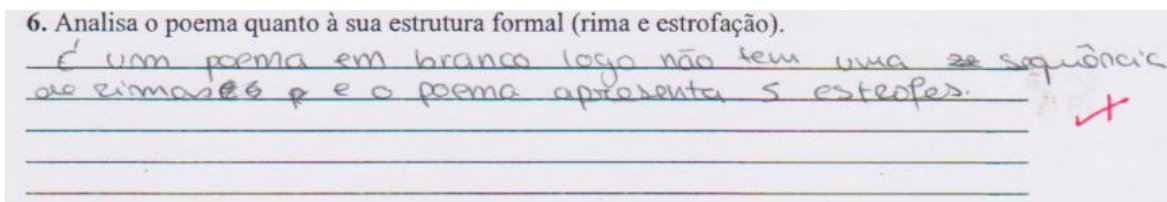 6. Analisa o poema quanto à sua estrutura formal (rima e estrofação).
É um poema em branco logo não tem uma sequência
de rimas e o poema apresenta 5 estrofes.